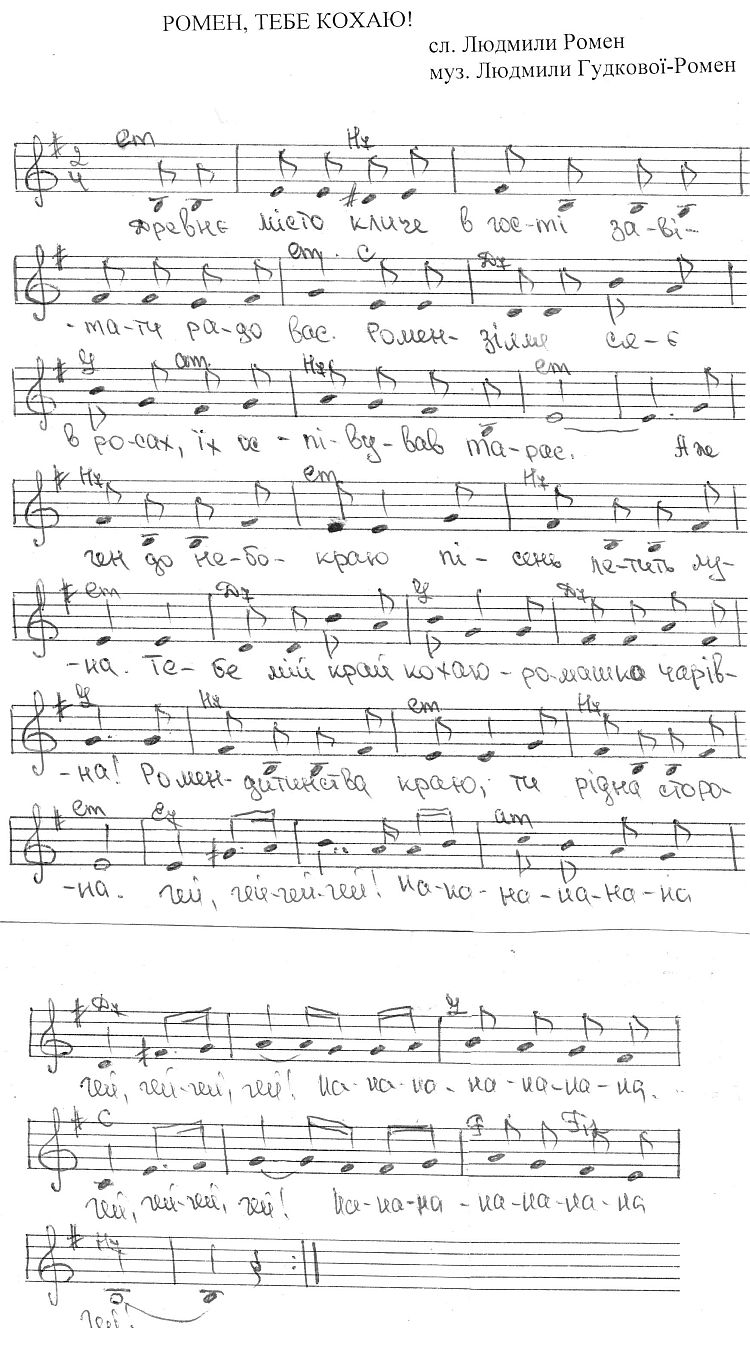 РОМЕН, ТЕБЕ КОХАЮ!
сл. Людмили Ромен
муз. Людмили Гудкової-Ромен
em H7
2
4
Древнє місто кличе в гос-ті за-ві-
em C D7
-та-ти ра-до вас. Ромен- зілля ся-є
G am H7 em
в ро-сах, їх ос-пі-ву-вав Та-рас. Аже
H7 em H7
ген до не-бо- краю пі- сень ле-тить лу-
em D7 G D7
-на. Те-бе мій край кохаю-ромашка чарів-
G H7 em H7
-на! Ромен-дитинства краю, ти рідна сторо-
em E7 am
-на. Гей, гей-гей-гей! На-на- на-на-на-на
D7 G
Гей, гей-гей, гей! На-на-на- на-на-на-на.
C F
Гей, гей-гей, гей! На-на-на -на-на-на-на
H7
Гей!